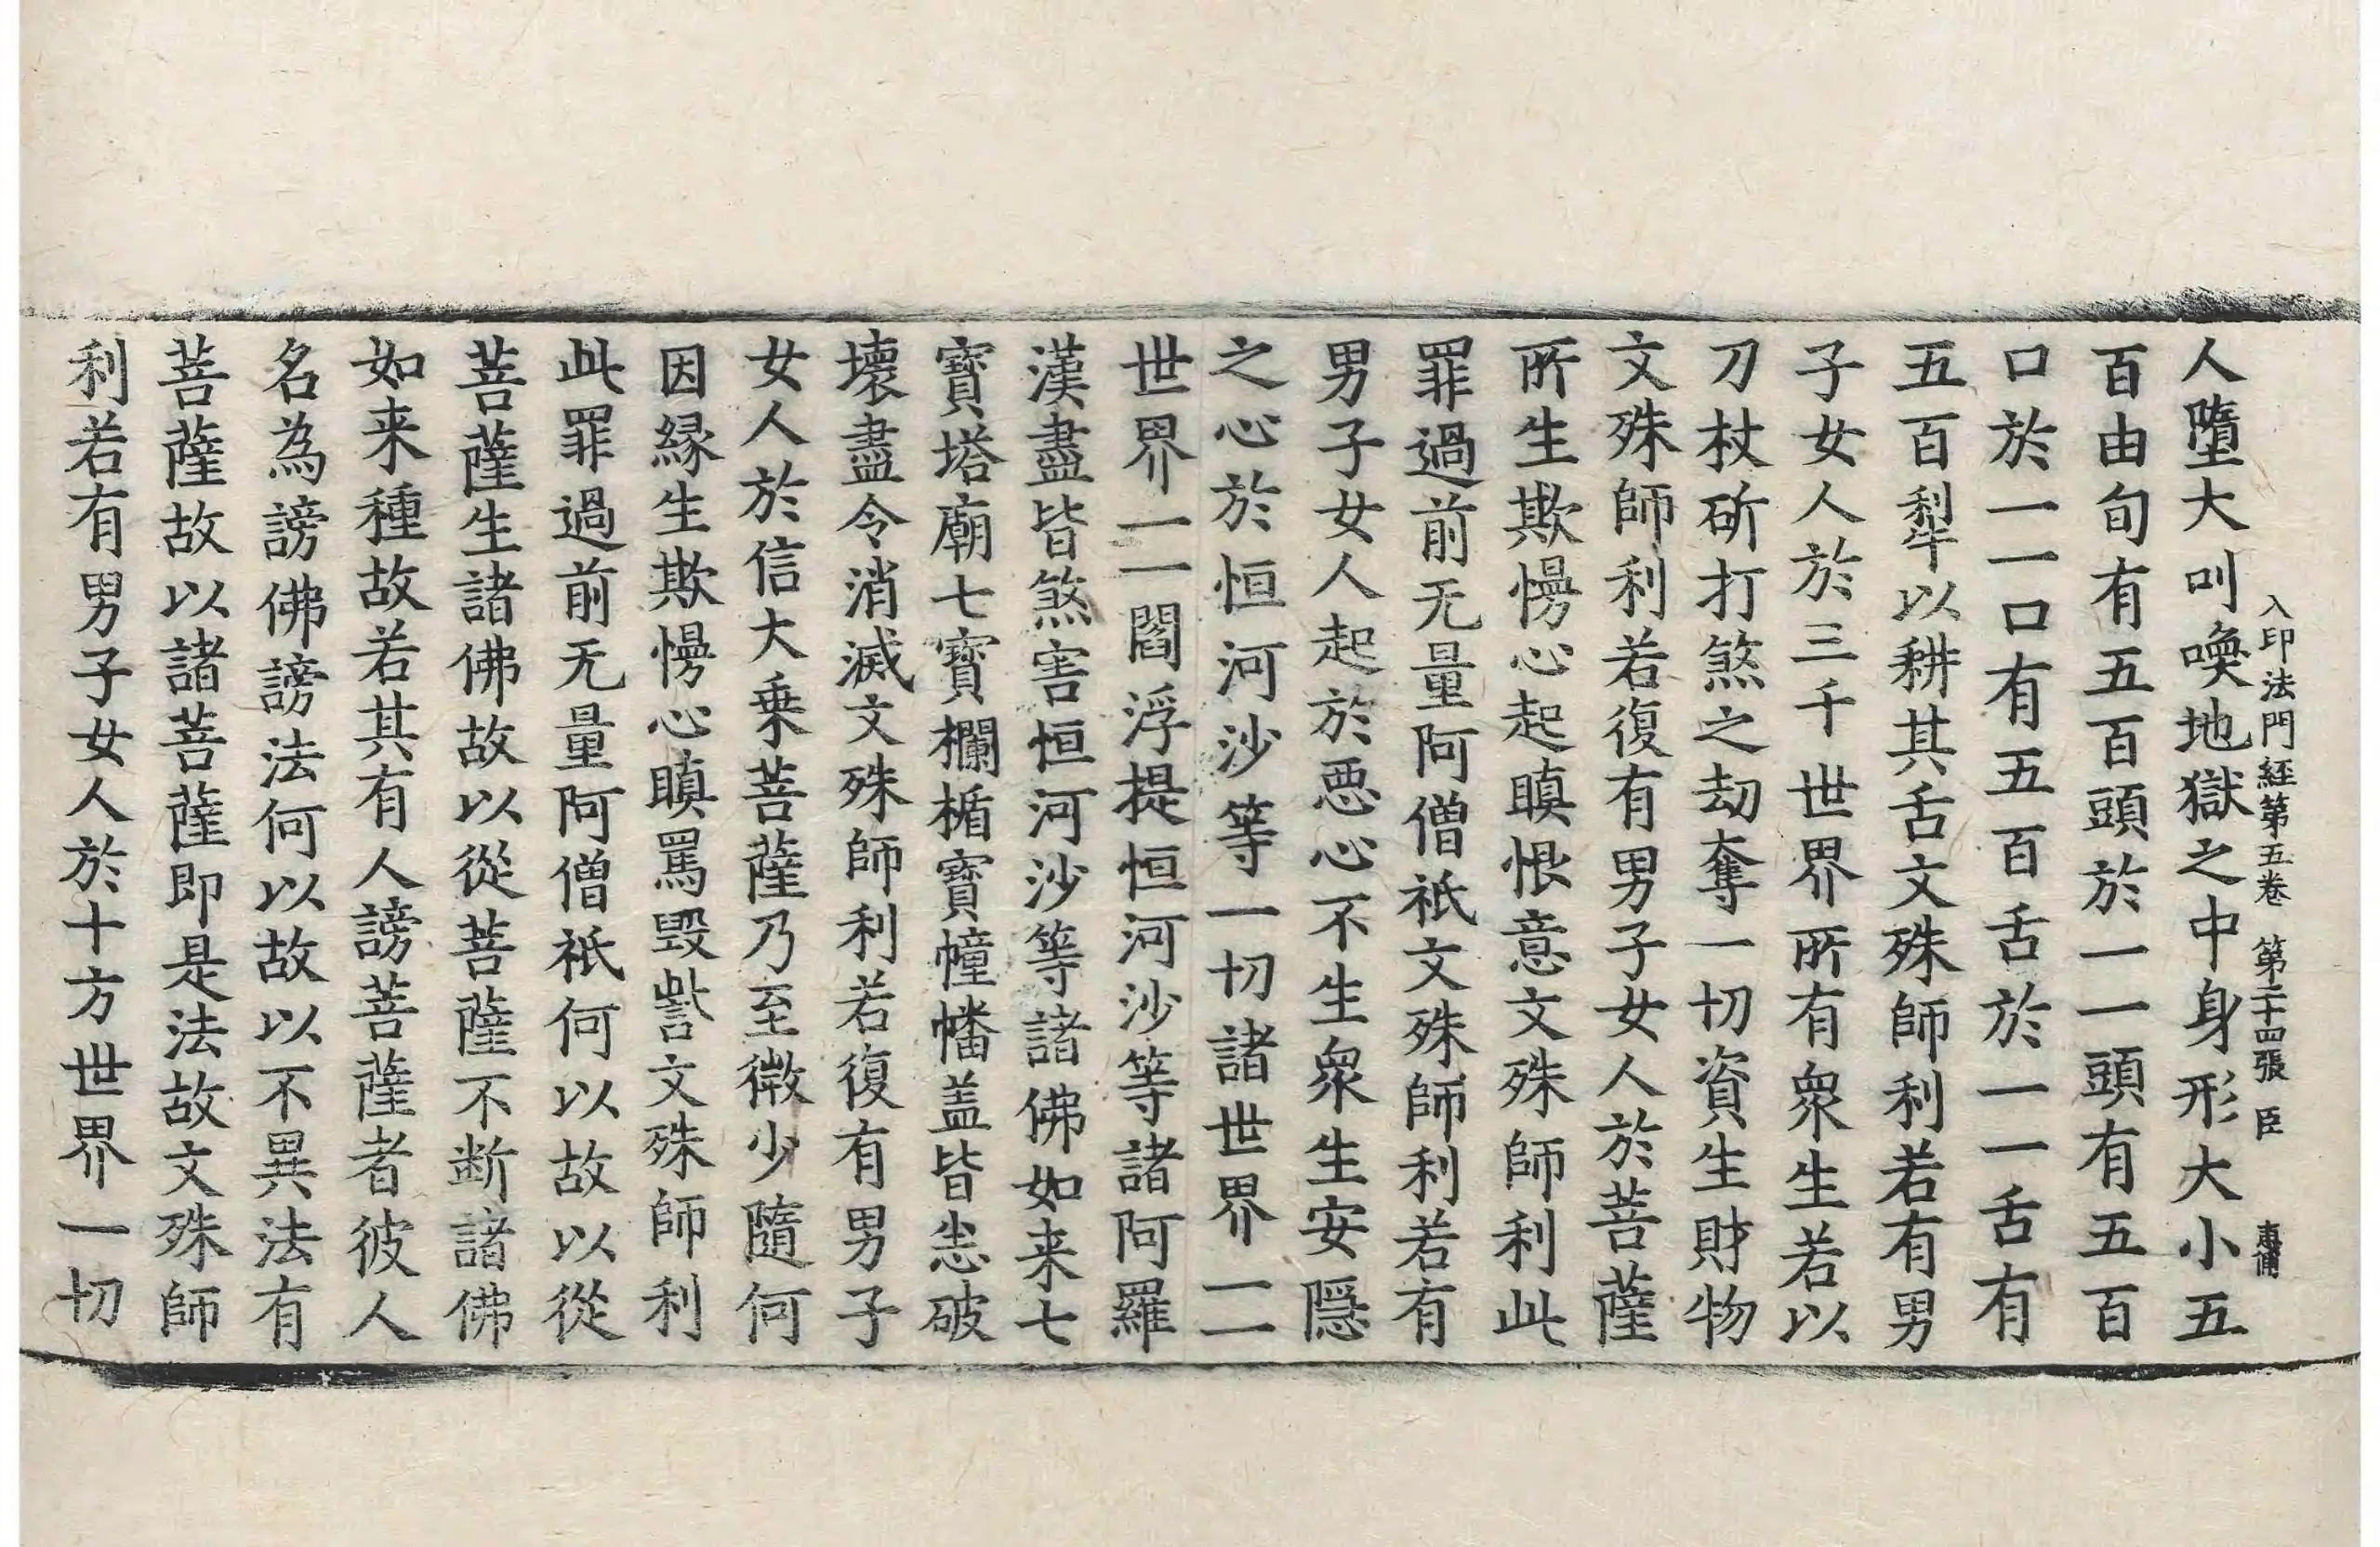 入印法門經第五卷　第二十四張　臣
人墮大叫喚地獄之中身形大小五
百由旬有五百頭於一一頭有五百
口於一一口有五百舌於一一舌有
五百犁以耕其舌文殊師利若有男
子女人於三千世界所有衆生若以
刀杖斫打煞之劫奪一切資生財物
文殊師利若復有男子女人於菩薩
所生欺慢心起瞋恨意文殊師利此
罪過前无量阿僧祇文殊師利若有
男子女人起於惡心不生衆生安隱
之心於恒河沙等一切諸世界一一
世界一一閻浮提恒河沙等諸阿羅
漢盡皆煞害恒河沙等諸佛如来七
寶塔廟七寶欄楯寶幢幡盖皆悉破
壞盡令消滅文殊師利若復有男子
女人於信大乗菩薩乃至微少隨何
因縁生欺慢心瞋罵毀訾文殊師利
此罪過前无量阿僧祇何以故以從
菩薩生諸佛故以從菩薩不断諸佛
如来種故若其有人謗菩薩者彼人
名為謗佛謗法何以故以不異法有
菩薩故以諸菩薩即是法故文殊師
利若有男子女人於十方世界一切